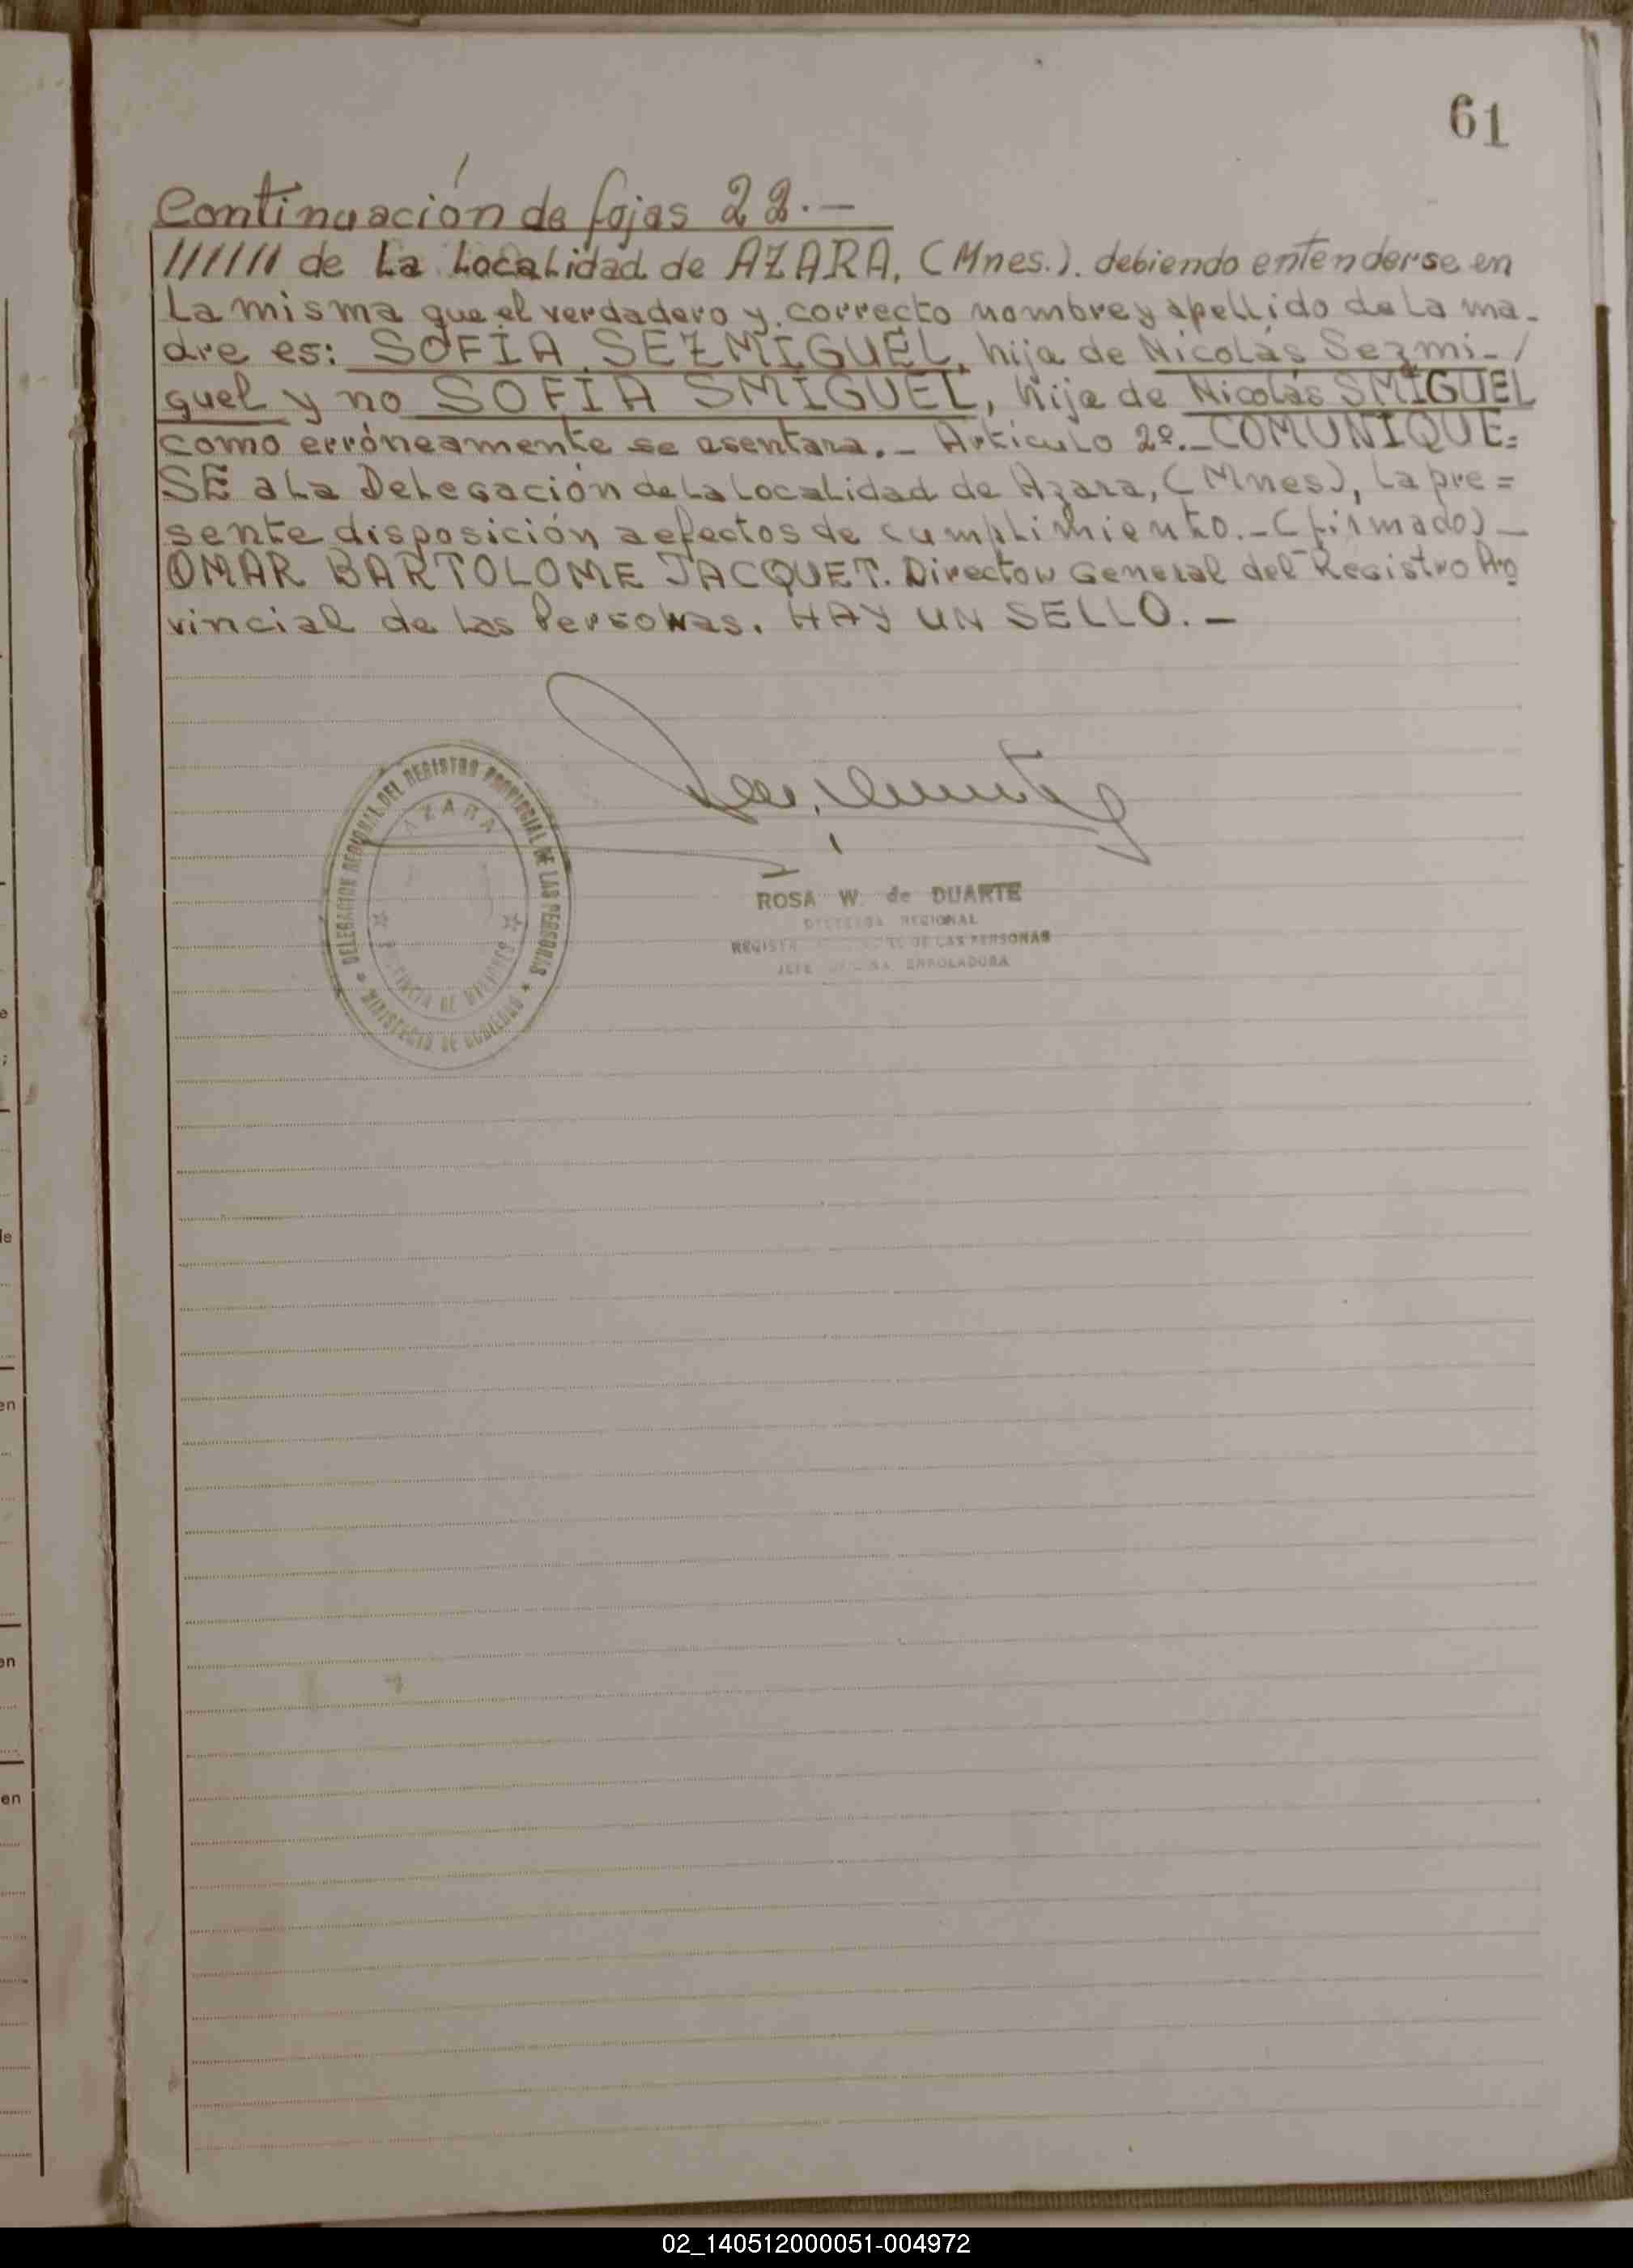 61
Continuación de fojas 22.—
/////// de La Localidad de AZARA, (Mnes.). debiendo entenderse en
La misma que el verdadero y correcto nombre y apellido de La ma-
dre es: SOFÍA SEZMIGUEL, hija de Nicolás Sezmi-/
guel y no SOFÍA SMIGUEL, hija de Nicolás SMIGUEL
como erróneamente se asentara.- Artículo 2º.- COMUNIQUE=
SE a La Delegación de La Localidad de Azara, (Mnes), La pre=
sente disposición a efectos de cumplimiento.-(firmado)—
OMAR BARTOLOME JACQUET. Director General del Registro Pro
vincial de las Personas. HAY UN SELLO.—
DELEGACION REGIONAL DEL REGISTRO PROVINCIAL DE LAS PERSONAS
AZARA
PROVINCIA DE MISIONES
* MINISTERIO DE GOBIERNO *
ROSA W. de DUARTE
REGIONAL
DE LAS PERSONAS
JEFE ENROLADORA
e
;
de
en
en
en
02_140512000051-004972